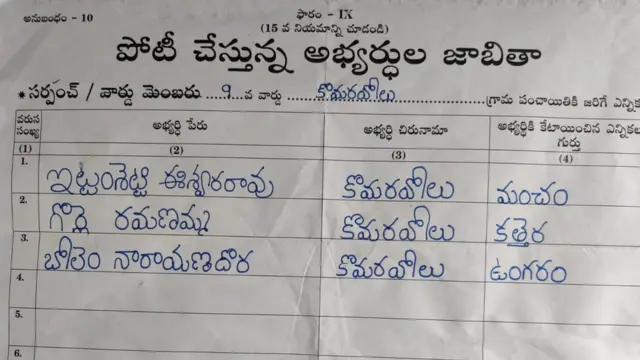 అనుబంధం - 10
ఫారం - IX
(15 వ నియమాన్ని చూడండి)
పోటీ చేస్తున్న అభ్యర్థుల జాబితా
* సర్పంచ్ / వార్డు మెంబరు ....9....వ వార్డు ........కొమరవోలు........(గ్రామ పంచాయితికి జరిగే ఎన్నిక
వరుస సంఖ్య అభ్యర్థి పేరు అభ్యర్థి చిరునామా అభ్యర్థికి కేటాయించిన ఎన్నికల గుర్తు
(1) (2) (3) (4)
1. ఇట్టంశెట్టి ఈశ్వరరావు కొమరవోలు మంచం
2. గొర్లె రమణమ్మ కొమరవోలు కత్తెర
3. బోలెం నారాయణదొర కొమరవోలు ఉంగరం
4.
5.
6.